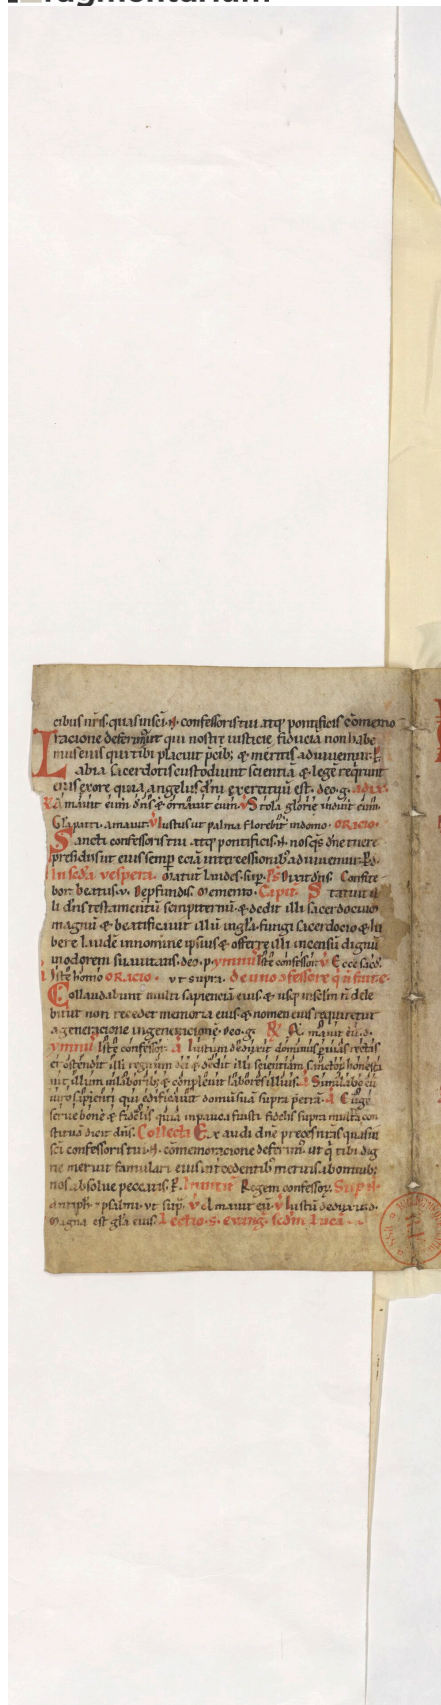 cibus nr̄is. quas in sc̄i .N. confessoris tui atq; pontificis cōmemo
racione deferimus ut qui nostre iusticie fiduciā non habe
mus eius qui tibi placuit p̄cib; & meritis adiuuemur. P.
Labia sacerdotis custodiunt scientiā & legē req̇runt
ex eius ore quia angelus dn̄i exercituū est. deo.g.
R Amauit eum dn̄s & ornauit eum. V Stola glorię induit eum.
Gl̄a patri. amauit. V Iustus ut palma florebit in domo. ORACIO.
Sancti confessoris tui atq; pontificis .N. nos q̄s dn̄e tuere
presidiis ut eius semp̄ eciā intercessionib; adiuuemur. P.d.
In scd̄a vespera.
bor. beatus. v. Dep̄fundis. Memento. Capit. Statuit il
li dn̄s testamentū sempiternū. & dedit illi sacerdociū
magnū & beatificauit illū in gl̄a. fungi sacerdocio & ha
bere laudē in nomine ip̄sius & offerre illi incensū dignū
in odorem suauitatis. deo. p. ymnus Iste confessor. V Ecce sacd̄.
Iste homo ORACIO. vt supra. De uno
Collaudabunt multi sapienciā eius & usq; in sc̄lm n̄ dele
bitur non recedet memoria eius & nomen eius requiretur
a generacione in generacionē. Deo.g. R Amauit eū.d.
ymnus Iste confessor. A Iustum deduxit dominus p̄ uias rectas
et ostendit illi regnum dei & dedit illi scientiam sanctoȝ honesta
uit illum in laborib; & compleuit labores illius. A Similabo eū
uiro sapienti qui edificauit domū suā supra petrā. A Euge
serue bone & fidelis quia in pauca fuisti fidelis supra multa con
stituā dicit dn̄s. Collecta Exaudi dn̄e preces nr̄as quas in
sc̄i confessoris tui .N. cōmemoracione deferim; ut q̇ tibi dig
ne meruit famulari eius intcedentib; meritis ab omnib;
nos absolue peccatis. P. Inuitat̄ Regem confessoȝ. Sup̄
antiph. psalmi. vt sup̄. V Amauit eū. V Iustū deduxit. d.
Magna est gl̄a eius. Lectio .s. euang. scdm Lucā.